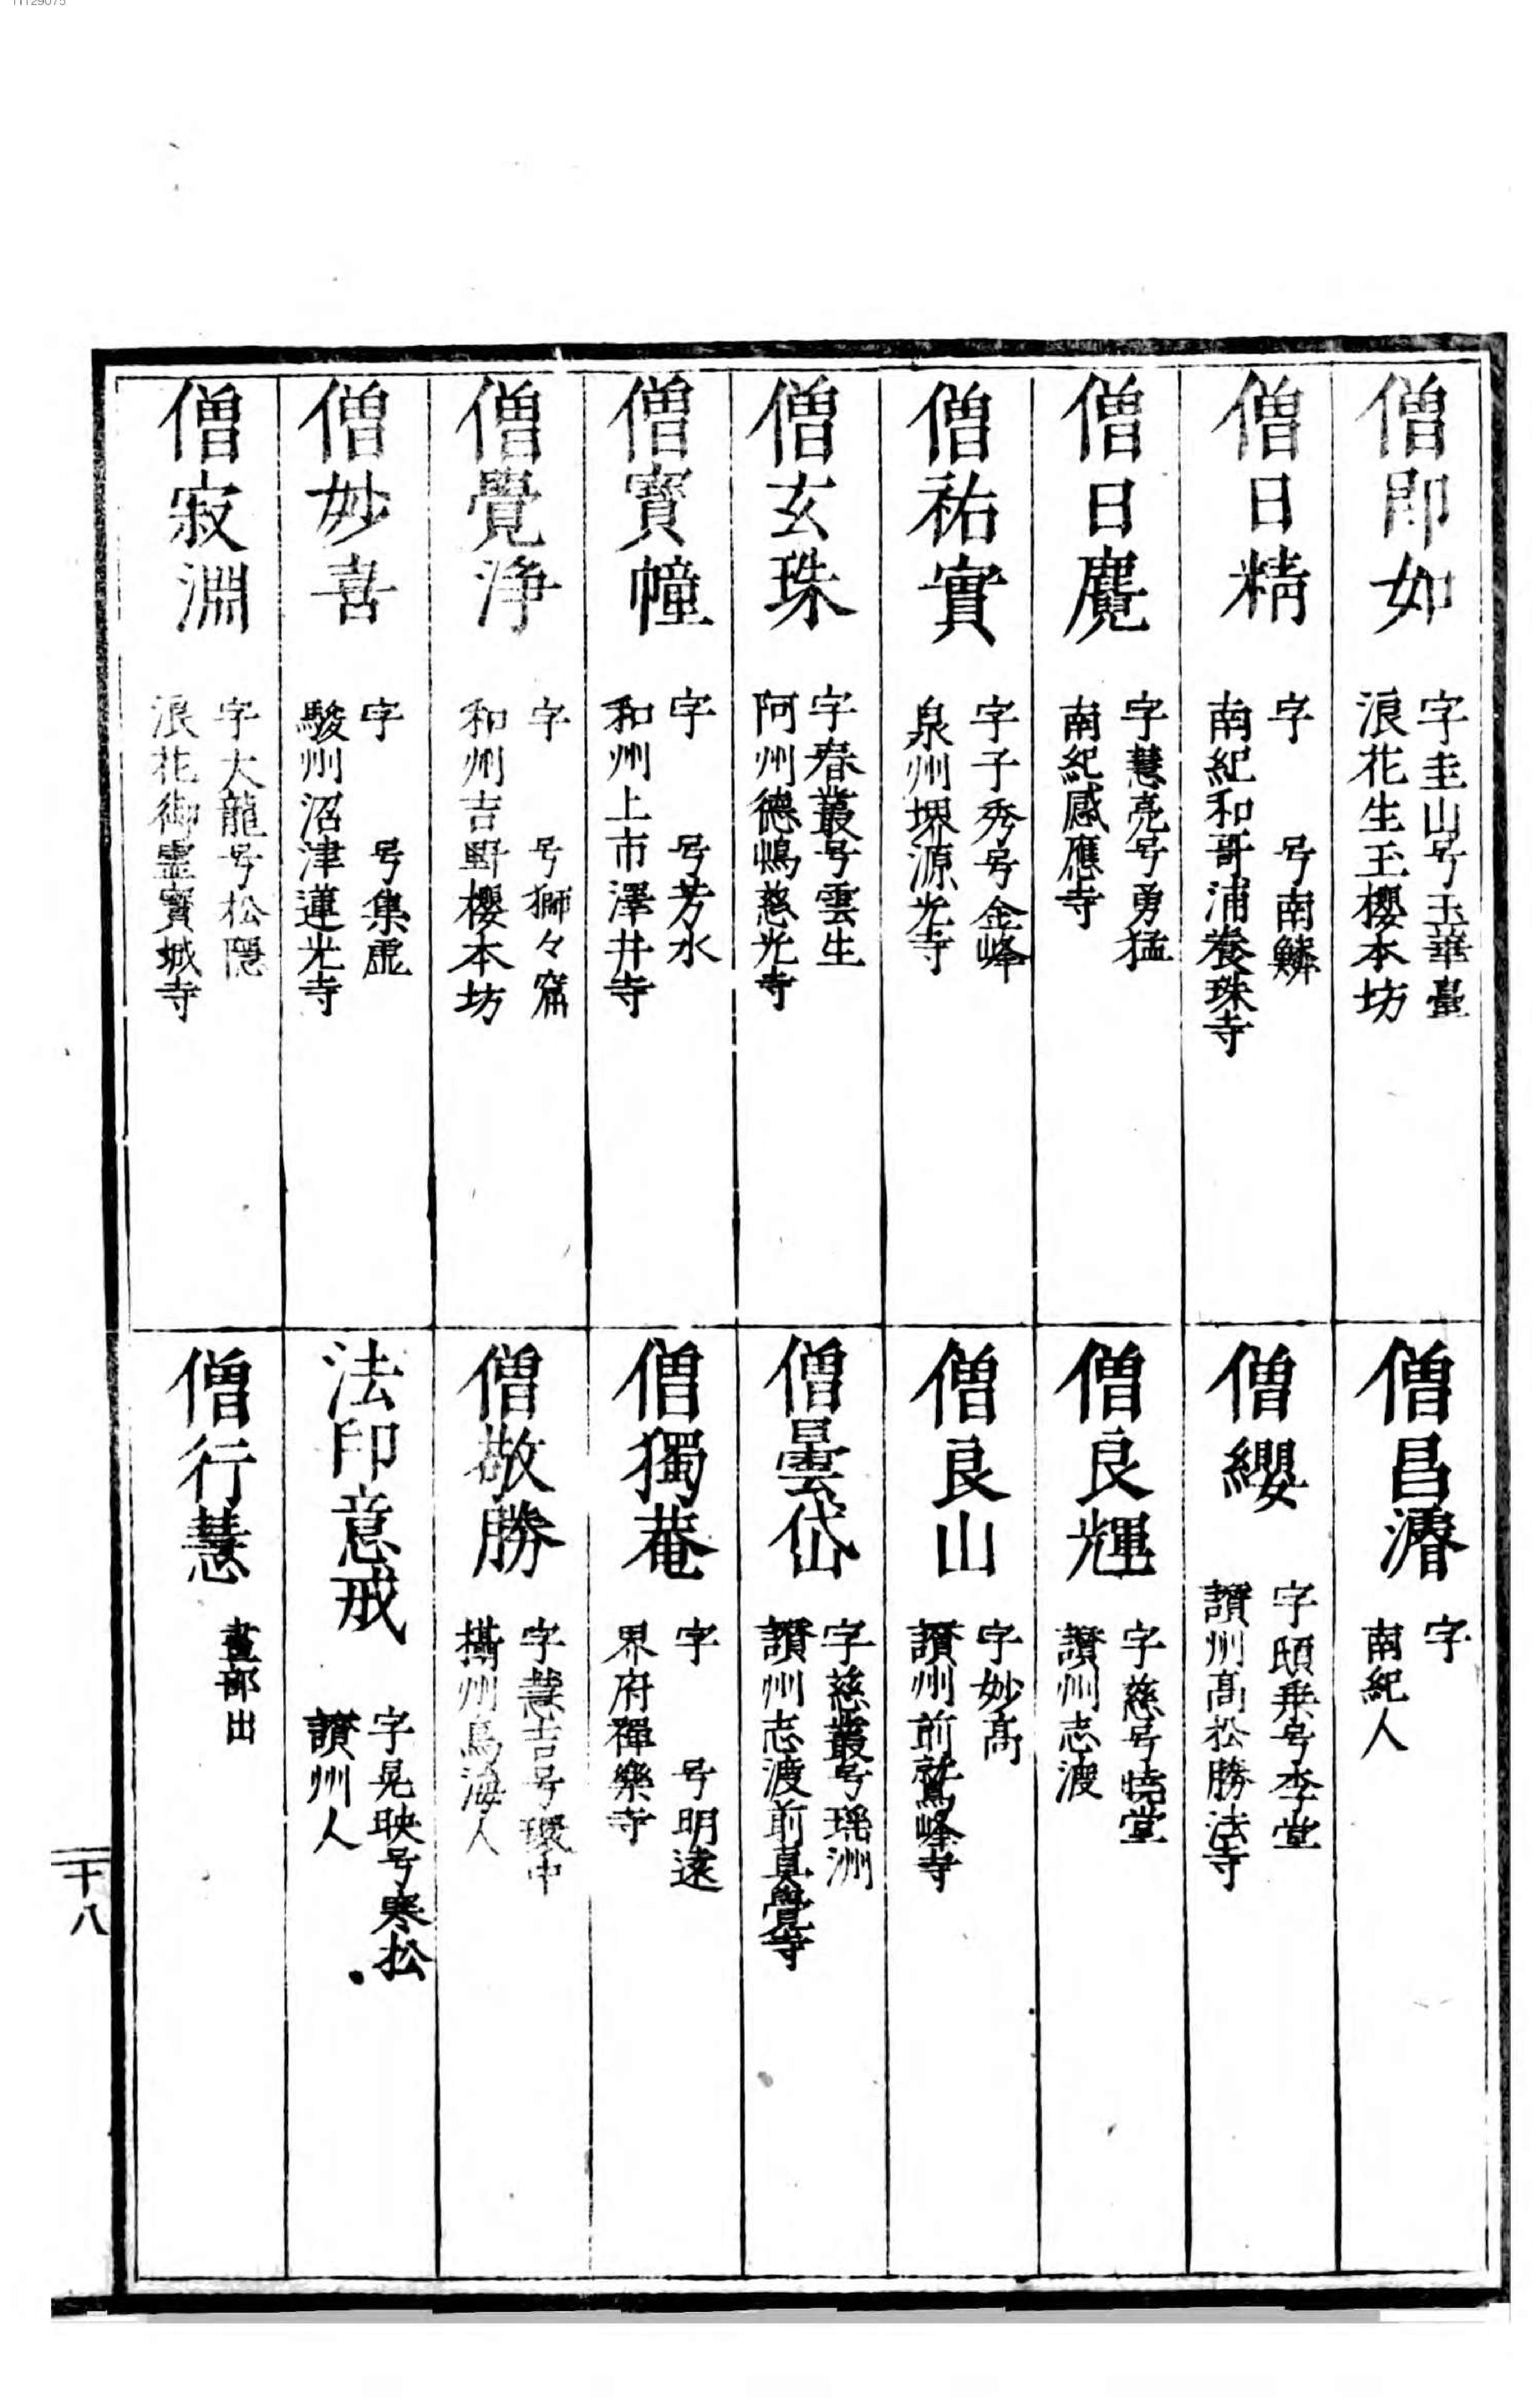 11129075
僧即如
字圭山号玉華臺
浪花生玉櫻本坊
僧日精
字 号南鱗
南紀和哥浦養珠寺
僧日麑
字慧亮号勇猛
南紀感應寺
僧祐實
字子秀号金峰
泉州堺源光寺
僧玄珠
字春叢号雲生
阿州德嶋慈光寺
僧寶幢
字 号芳水
和州上市澤井寺
僧覺淨
字 号獅々窟
和州吉野櫻本坊
僧妙喜
字 号集虛
駿州沼津蓮光寺
僧寂淵
字大龍号松隱
浪花御靈寶城寺
僧昌濬
字
南紀人
僧纓
字頤乗号李堂
讃州髙松勝法寺
僧良輝
字慈号悟堂
讃州志渡
僧良山
字妙髙
讃州前鷲峰寺
僧曇岱
字慈叢号瑶洲
讃州志渡前真覺寺
僧獨菴
字 号明遠
界府禪樂寺
僧敬勝
字慧吉号環中
攝州鳥海人
法印意戒
字晃映号寒松
讃州人
僧行慧
畫部出
十八